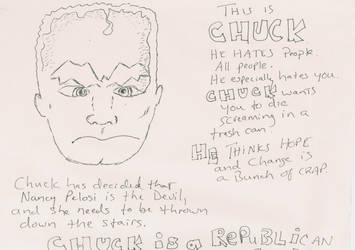 This is
CHUCK
HE HATES People.
All people.
He especially hates you.
CHUCK wants
you to die
screaming in a
trash can.
HE THINKS HOPE
and Change is
a Bunch of CRAP.
Chuck has decided that
Nancy Pelosi is the Devil,
and she needs to be thrown
down the stairs.
CHUCK is a REPUBLICAN